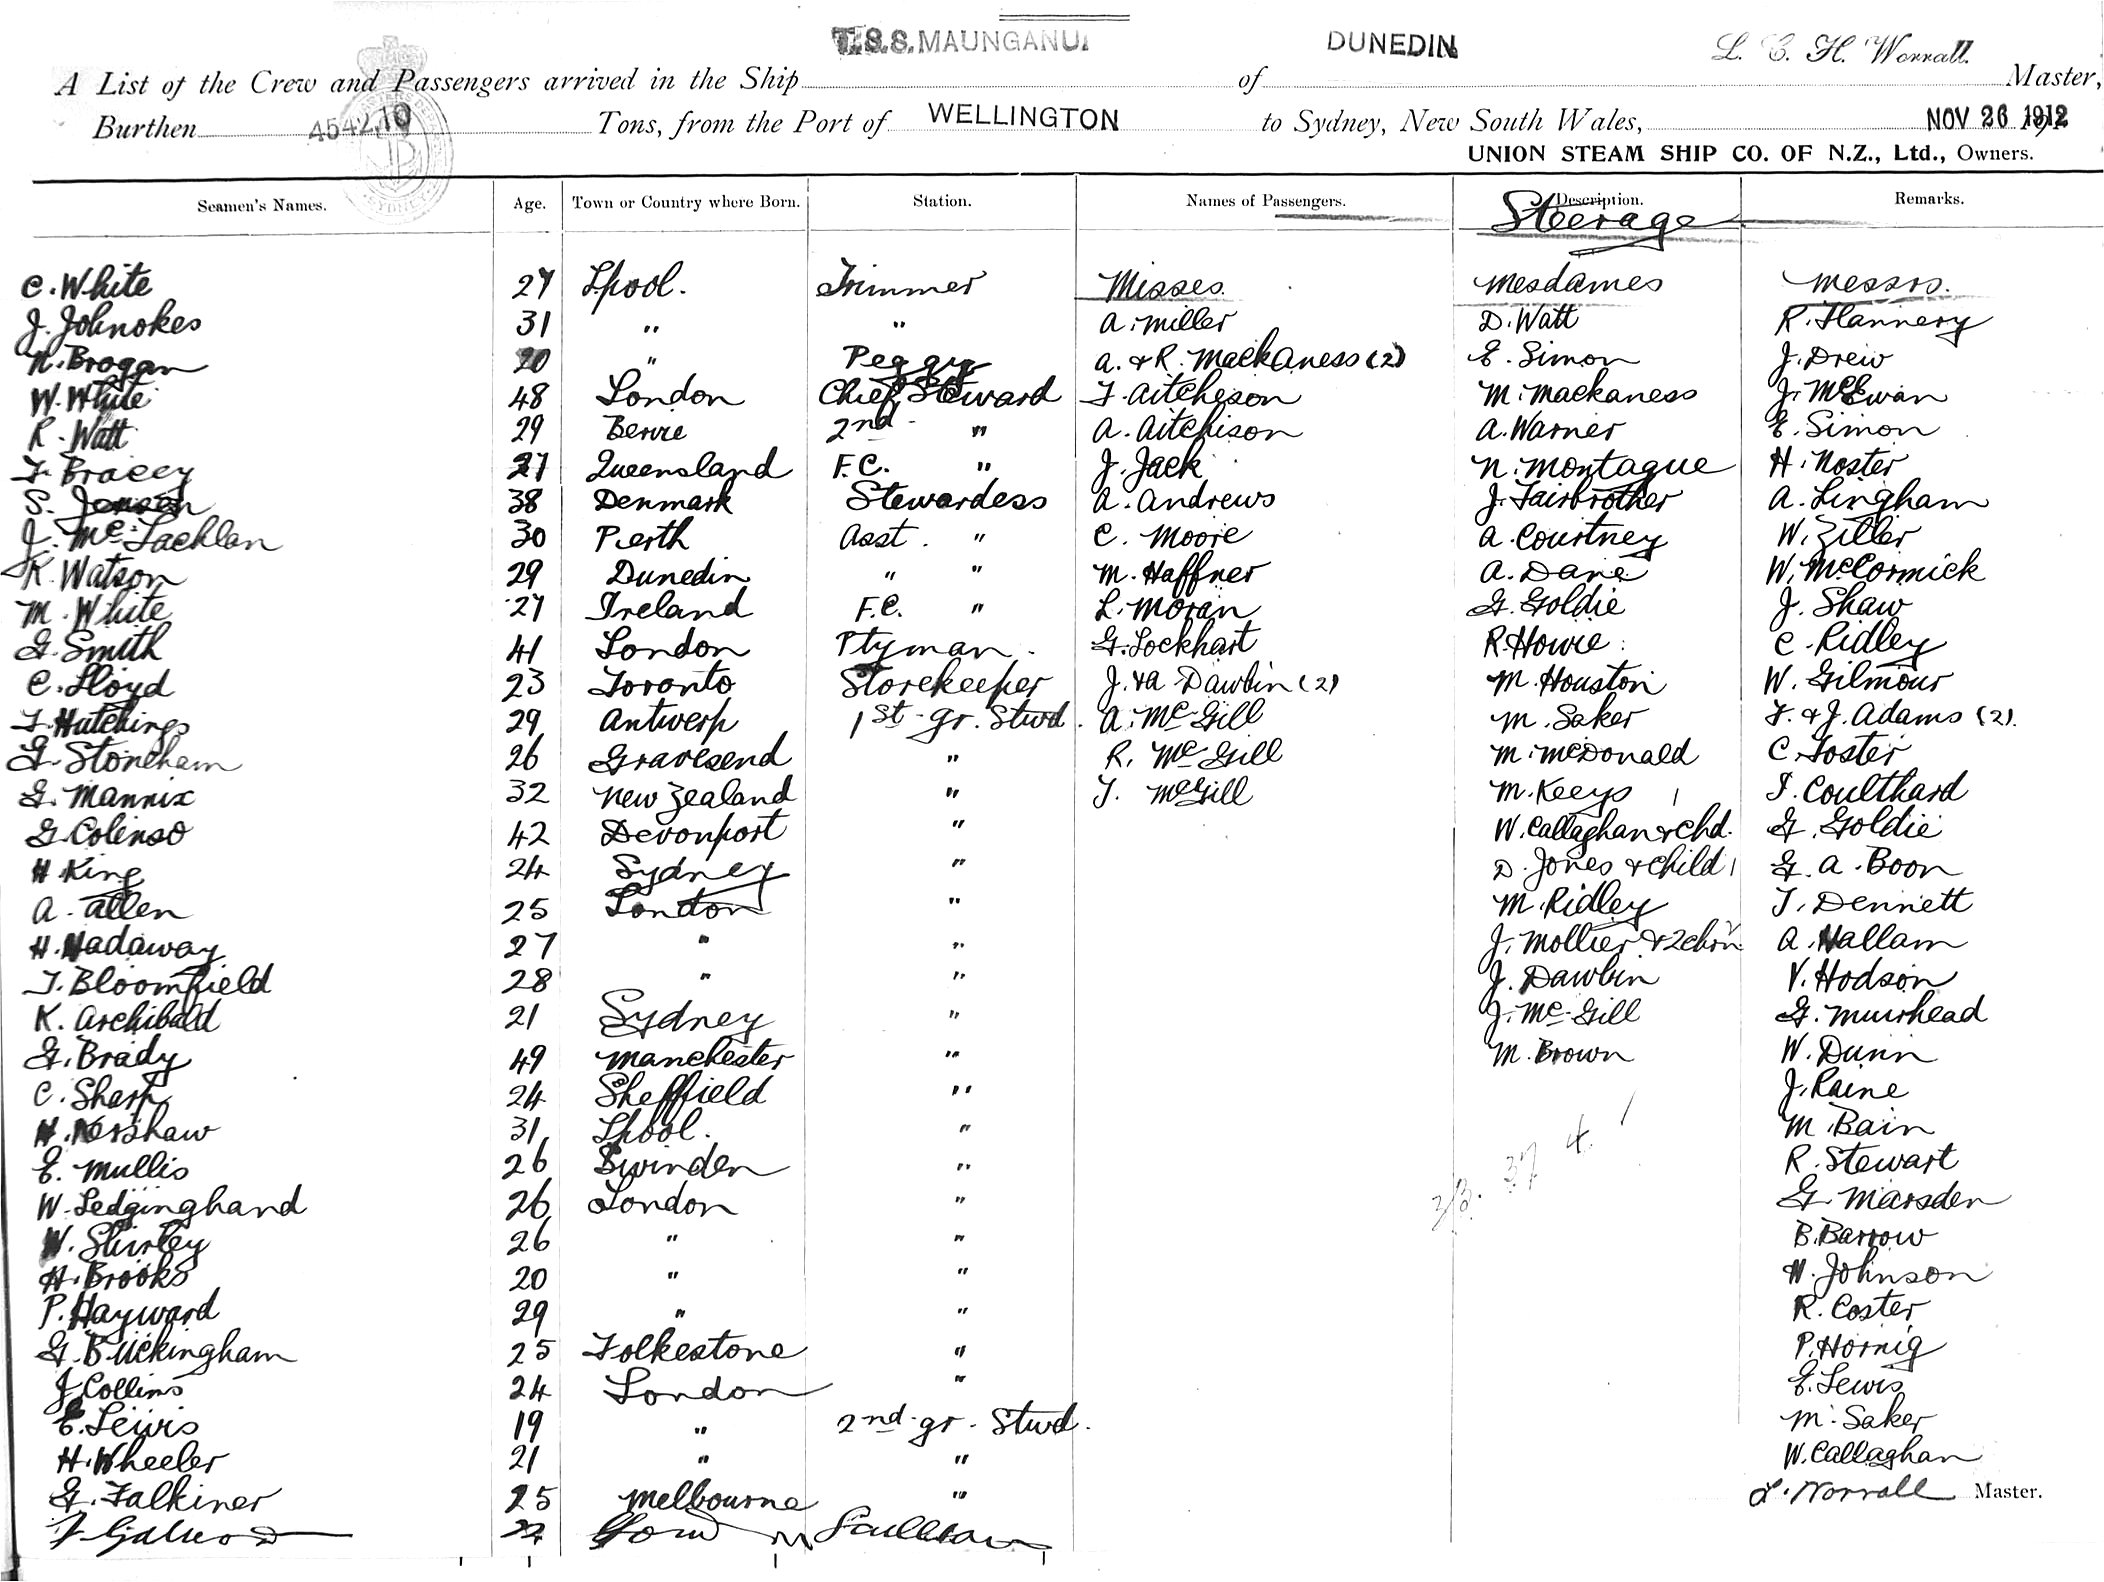 T.S.S. MAUNGANUI DUNEDIN L. C. H. Worrall.
A List of the Crew and Passengers arrived in the Ship of Master,
Burthen 4542,10 Tons, from the Port of WELLINGTON to Sydney, New South Wales, NOV 26 1912
UNION STEAM SHIP CO. OF N.Z., Ltd., Owners.
Seamen's Names. Age. Town or Country where Born. Station. Names of Passengers. Description. Remarks.
Steerage
C. White 27 Lpool. Trimmer Misses. Mesdames Messrs.
J. Johnokes 31 " " A. Miller D. Watt R. Flannery
N. Brogan 20 " Peggy A. & R. Mackaness (2) E. Simon J. Drew
W. White 48 London Chief Steward F. Aitcheson M. Mackaness J. McEwan
R. Watt 29 Bervie 2nd " A. Aitchison A. Warner E. Simon
F. Bracey 27 Queensland F.C. " J. Jack N. Montague H. Noster
S. Jensen 38 Denmark Stewardess A. Andrews J. Fairbrother A. Lingham
J. McLachlan 30 Perth Asst. " C. Moore A. Courtney W. Ziller
R. Watson 29 Dunedin " " M. Haffner A. Dane W. McCormick
M. White 27 Ireland F.C. " L. Moran G. Goldie J. Shaw
G. Smith 41 London Ptyman. G. Lockhart R. Howie C. Ridley
C. Lloyd 23 Toronto Storekeeper J. & A Dawbin (2) M. Houston W. Gilmour
F. Hutchings 29 Antwerp 1st gr. Stwd. A. McGill M. Saker F. & J. Adams (2).
G. Stoneham 26 Gravesend " R. McGill M. McDonald C. Foster
G. Mannix 32 New Zealand " T. McGill M. Keeys 1 T. Coulthard
G. Colenso 42 Devonport " W. Callaghan & Chd. G. Goldie
H. King 24 Sydney " D. Jones & Child 1 G. A. Boon
A. Allen 25 London " M. Ridley T. Dennett
H. Hadaway 27 " " J. Mollier & 2 Chrn A. Hallam
T. Bloomfield 28 " " J. Dawbin V. Hodson
K. Archibald 21 Sydney " J. McGill G. Muirhead
G. Brady 49 Manchester " M. Brown W. Dunn
C. Sharp 24 Sheffield " J. Raine
H. Kershaw 31 Lpool. " M. Bain
E. Mullis 26 Swinden " R. Stewart
W. Ledginghand 26 London " G. Marsden
W. Shirley 26 " " B. Barrow
H. Brooks 20 " " H. Johnson
P. Hayward 29 " " R. Coster
G. Buckingham 25 Folkestone " P. Hornig
J. Collins 24 London " E. Lewis
E. Lewis 19 " 2nd gr. Stwd. M. Saker
H. Wheeler 21 " " W. Callaghan
G. Falkiner 25 Melbourne " L. Worrall Master.